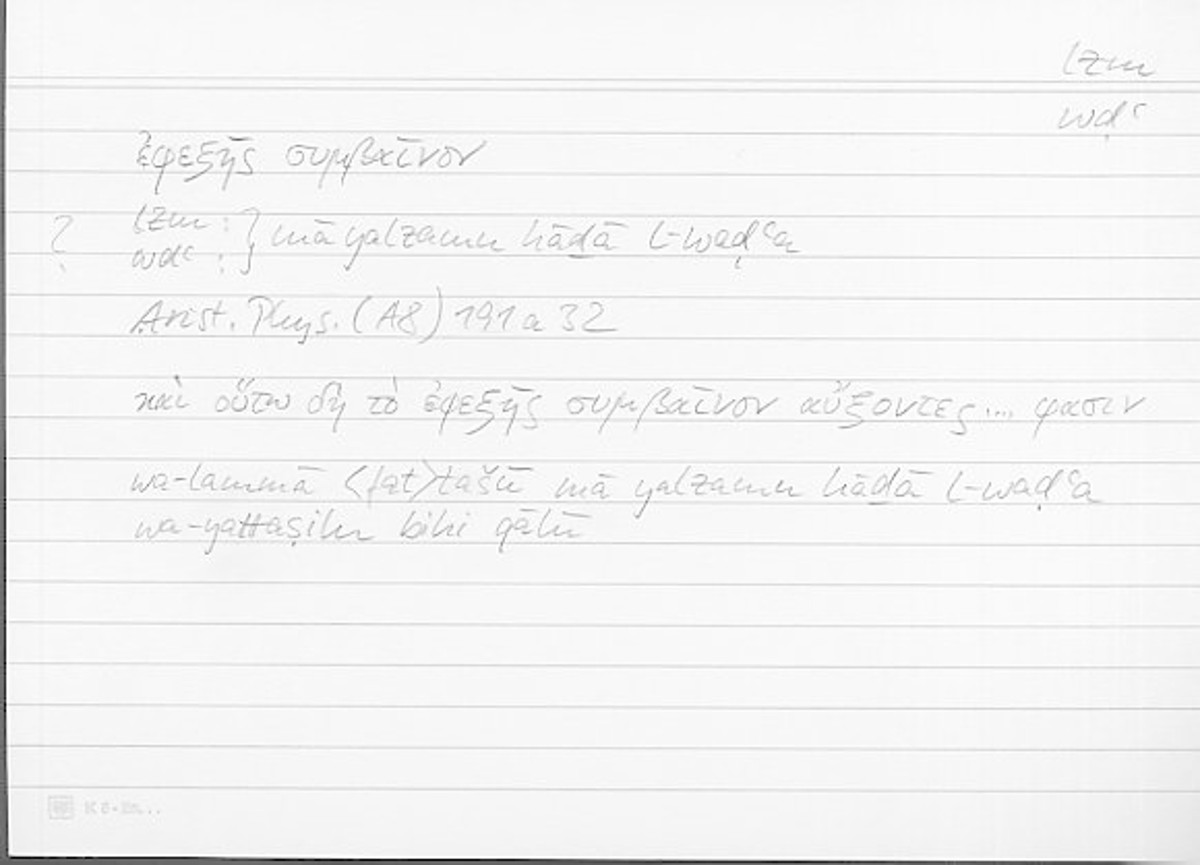 lzm
wḍʿ
ἐφεξῆς συμβαῖνον
? lzm : } mā yalzamu hāḏā l-waḍʿa
wdʿ : }
Arist. Phys. (A8) 191 a 32
καὶ οὕτω δὴ τὸ ἐφεξῆς συμβαῖνον αὔξοντες... φασιν
wa-lammā <fat>tašū mā yalzamu hāḏā l-waḍʿa
wa-yattaṣilu bihi qālū